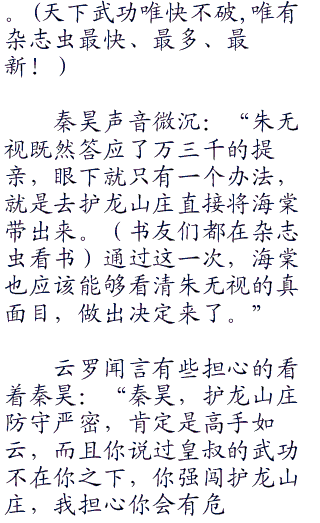 。(天下武功唯快不破,唯有
杂志虫最快、最多、最
新！)
秦昊声音微沉：“朱无
视既然答应了万三千的提
亲，眼下就只有一个办法，
就是去护龙山庄直接将海棠
带出来。（书友们都在杂志
虫看书）通过这一次，海棠
也应该能够看清朱无视的真
面目，做出决定来了。”
云罗闻言有些担心的看
着秦昊：“秦昊，护龙山庄
防守严密，肯定是高手如
云，而且你说过皇叔的武功
不在你之下，你强闯护龙山
庄，我担心你会有危